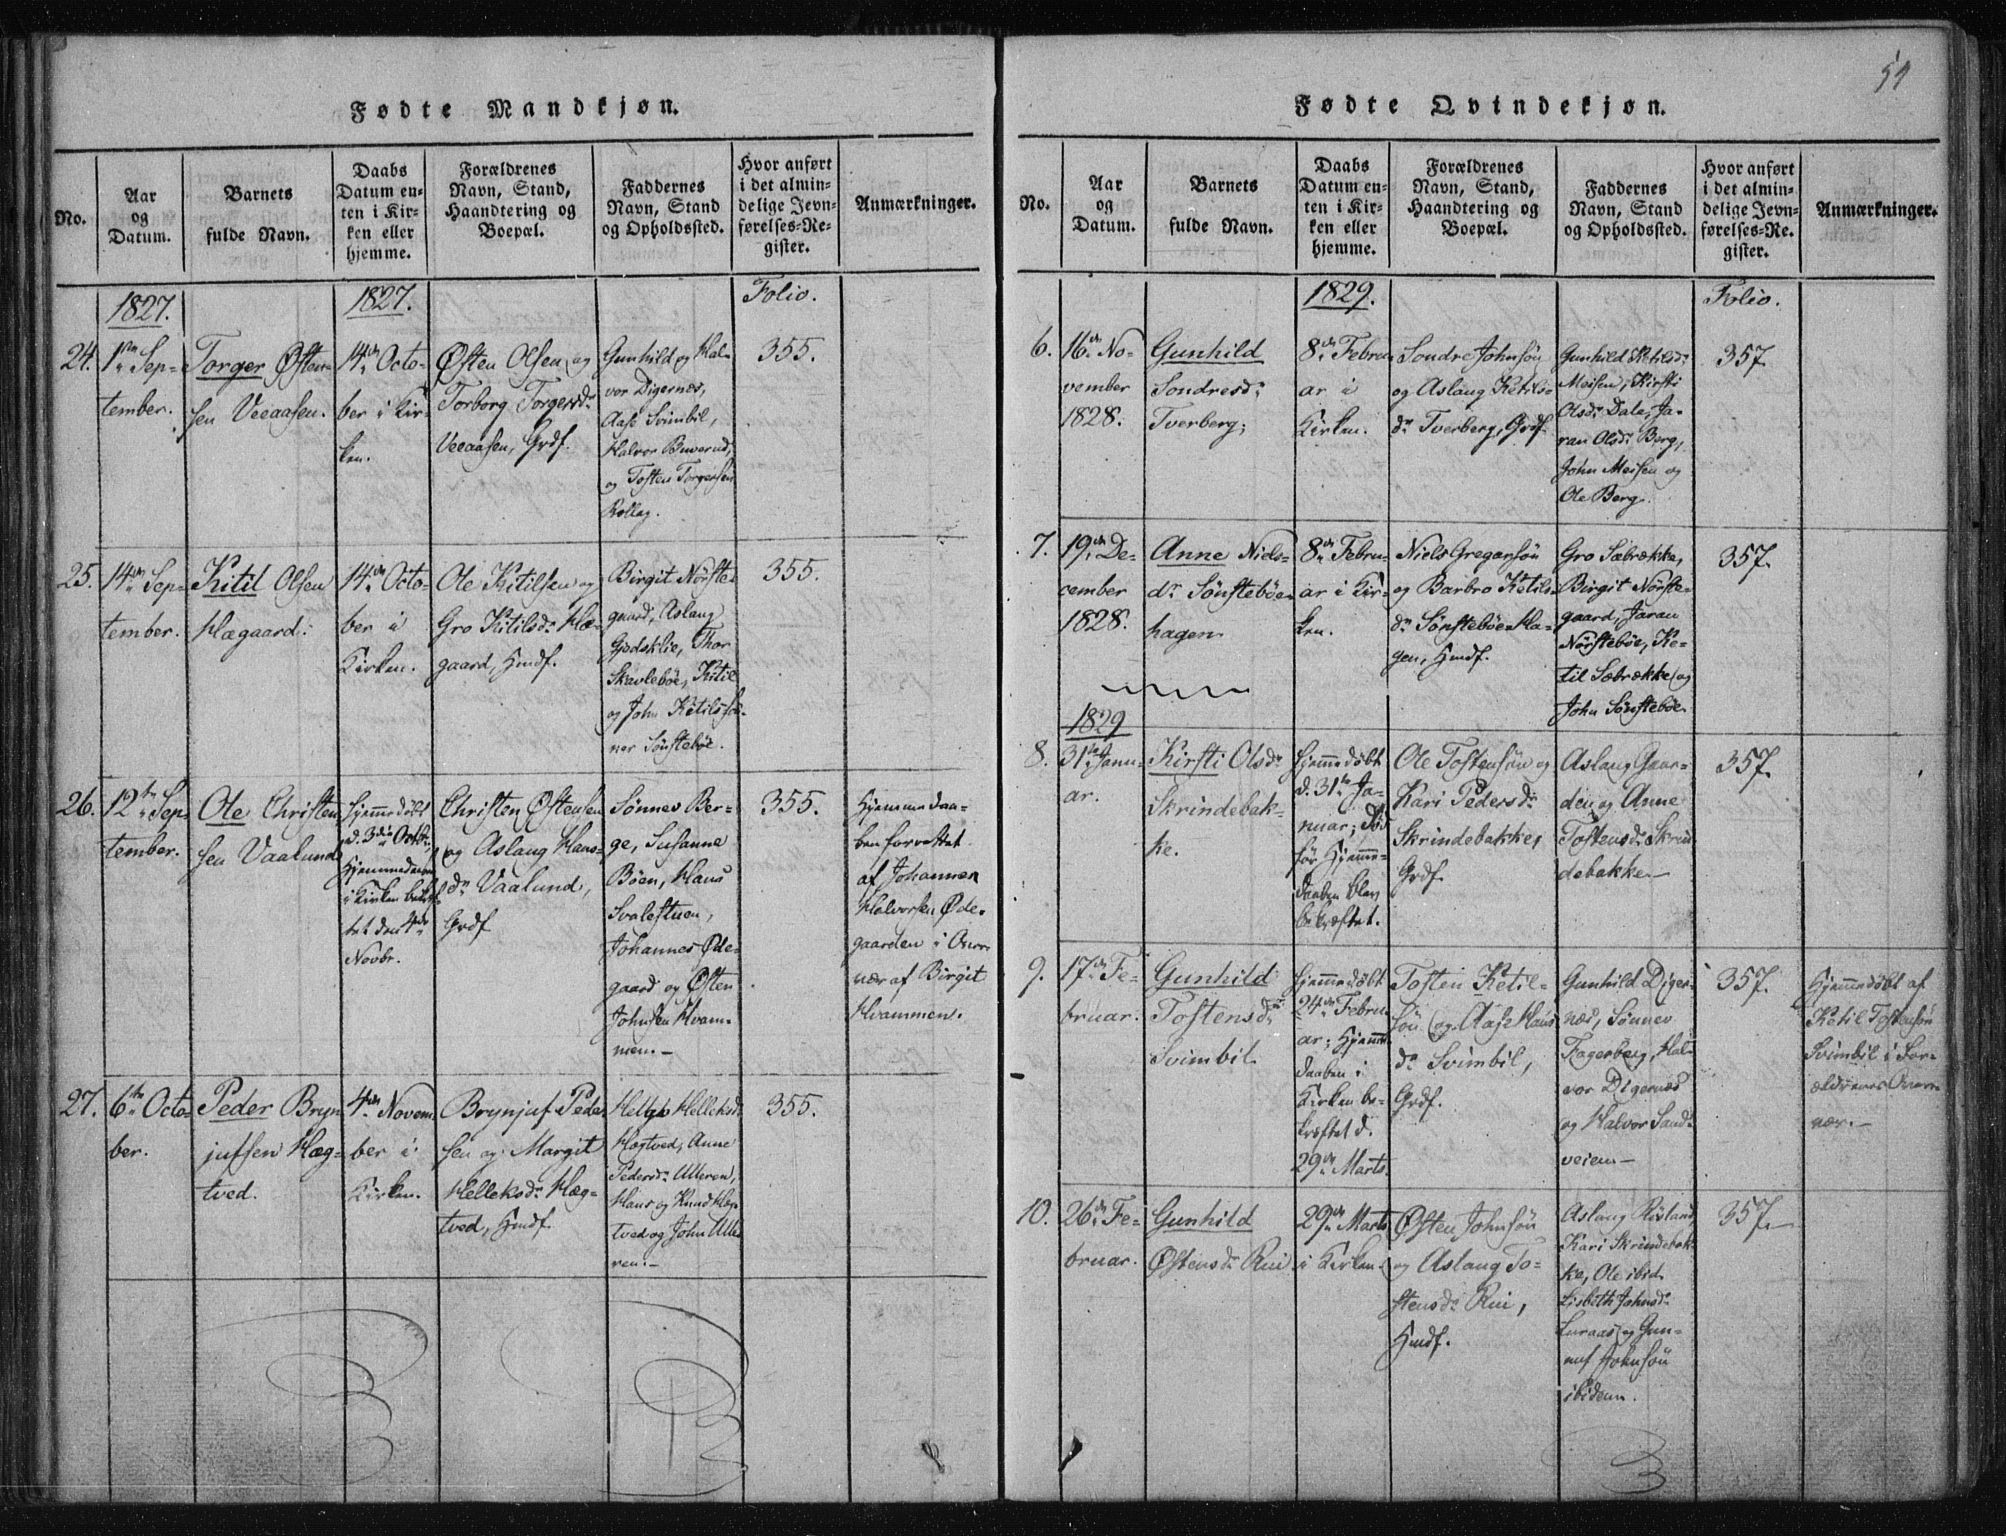 Fødte Mandkjøn.
No.
Aar
og
Datum.
Barnets
fulde Navn.
Daabs
Datum en-
ten i Kir-
ken eller
hjemme.
Forældrenes
Navn, Stand,
Haandtering og
Boepæl.
Faddernes
Navn, Stand
og Opholdssted.
Hvor anført
i det almin-
delige Jevn-
førelses-Re-
gister.
Anmærkninger.
1827.
1827.
Folio.
24.
1ste Sep-
tember.
Torger Østen-
sen Veeaasen.
14de Octo-
ber i Kir-
ken.
Østen Olsen og
Torborg Torgersdr
Veeaasen, Grdf.
Gunhild og Hal-
vor Digernæs,
Aase Svimbil,
Halvor Buverud,
og Tosten Torgersen
Rollag.
355.
25.
14de Sep-
tember.
Kitil Olsen
Hægaard.
14de Octo-
ber i
Kirken.
Ole Kitilsen og
Gro Kitilsdr Hæ-
gaard, Hmdf.
Birgit Nørste-
gaard, Aslaug
Gjødsklie, Thor
Skavlebøe, Kitil
og John Kitilssøn-
ner Sønstebøe.
355.
26.
12te Sep-
tember.
Ole Christen-
sen Vaalund
Hjemmedøbt
d. 3die Octbr,
Hjemmedaaben
i Kirken bekræf-
tet den 4de
Novbr.
Christen Østensen
og Aslaug Hans-
dr Vaalund,
Grdf
Sønnev Ber-
ge, Susanne
Bøen, Hans
Svalestuen,
Johannes Øde-
gaard og Østen
Johnsen Hvam-
men.-
355.
Hjemmedaa-
ben forrettet
af Johannes
Halvorsen Øde-
gaarden i Over-
vær af Birgit
Hvammen.
27.
6te Octo-
ber.
Peder Bryn-
julfsen Hæg-
tved.
4de Novem-
ber i
Kirken.
Brynjulf Peder-
sen og Margit
Helleksdr Hæg-
tved, Hmdf.
Helge Helleksdr
Hægtved, Anne
Pedersdr Ulleren,
Hans og Knud Hæg-
tved og John Ulle-
ren.-
355.
51
Fødte Qvindekjøn.
No.
Aar
og
Datum.
Barnets
fulde Navn.
Daabs
Datum en-
ten i Kir-
ken eller
hjemme.
Forældrenes
Navn, Stand,
Haandtering og
Boepæl.
Faddernes
Navn, Stand
og Opholdssted.
Hvor anført
i det almin-
delige Jevn-
førelses-Re-
gister.
Anmærkninger.
1829.
Folio.
6.
16de No-
vember
1828.
Gunhild
Sondresdr
Tverberg;
8de Febru-
ar i
Kirken.
Sondre Johnsøn
og Aslaug Ketils-
dr Tverberg, Grdf
Gunhild Ketilsdr
Meisen, Kirsti
Olsdr Dale, Ja-
ran Olsdr Berg,
John Meisen og
Ole Berg.
357.
7.
19de De-
cember
1828.
Anne Niels-
dr Sønstebøe-
hagen
8de Febru-
ar i Kir-
ken.
Niels Gregarsøn
og Barbro Ketils-
dr Sønstebøe-Ha-
gen, Hmdf.
Gro Sæbrække,
Birgit Nørste-
gaard, Jaran
Nørstebøe, Ke-
til Sæbrække og
John Sønstebøe
357.
1829
8.
31te Janu-
ar.
Kirsti Olsdr
Skrindebak-
ke.
Hjemmedøbt
d. 31te Ja-
nuar; død
før Hjemme-
daaben blev
bekræftet.
Ole Tostensøn og
Kari Pedersdr
Skrindebakke,
Grdf.
Aslaug Gaar-
den og Anne
Tostensdr Skrin-
debakke-
357.
9.
17de Fe-
bruar.
Gunhild
Tostensdr
Svimbil
Hjemmedøbt
24de Febru-
ar; Hjemme-
daaben i
Kirken be-
kræftet d.
29de Marts.
Tosten Ketil-
søn og Aase Hans-
dr Svimbil,
Grdf.
Gunhild Diger-
næs, Sønnev
Fagerberg, Hal-
vor Digernæs
og Halvor Sand-
veien-
357.
Hjemmedøbt af
Ketil Tostensøn
Svimbil i For-
ældrenes Over-
vær.-
10.
26de Fe-
bruar.
Gunhild
Østensdr Rui
29de Marts
i Kirken.
Østen Johnsøn
og Aslaug To-
stensdr Rui,
Hmdf.
Aslaug Risland,
Kari Skrindebak-
ke, Ole ibid.
Lisbeth Johnsdr
Luraas og Gun-
nuf Johnsøn
ibidem.
357.-